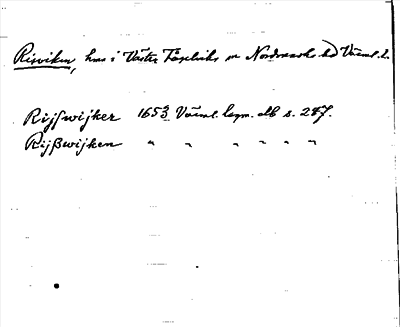 Risviken, hmn i Väster Fågelviks sn Nordmarks hd Värml. l.
Rijſwijker 1653 Värml. lagm. db s. 247.
Rijßwijken " " " " " "